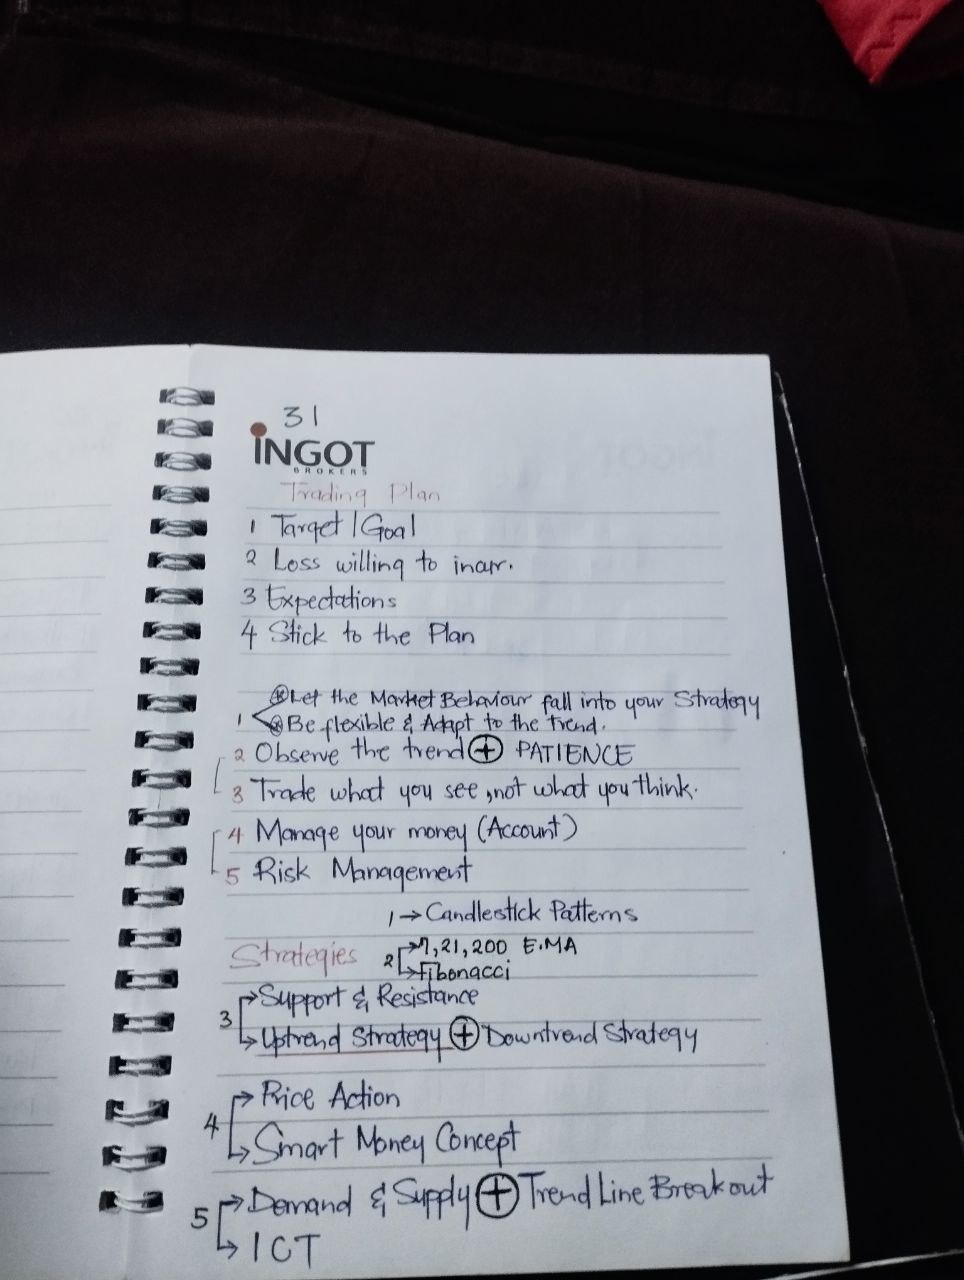 31
INGOT
BROKERS
Trading Plan
1 Target/Goal
2 Loss willing to incur.
3 Expectations
4 Stick to the Plan
⊛Let the Market Behaviour fall into your Strategy
1
⊛Be flexible & Adapt to the trend.
2 Observe the trend ⊕ PATIENCE
3 Trade what you see, not what you think.
4 Manage your money (Account)
5 Risk Management
1 → Candlestick Patterns
Strategies 2 → 7,21,200 E.MA
→ Fibonacci
3 → Support & Resistance
→ Uptrend Strategy ⊕ Downtrend Strategy
4 → Price Action
→ Smart Money Concept
5 → Demand & Supply ⊕ Trend Line Breakout
→ ICT